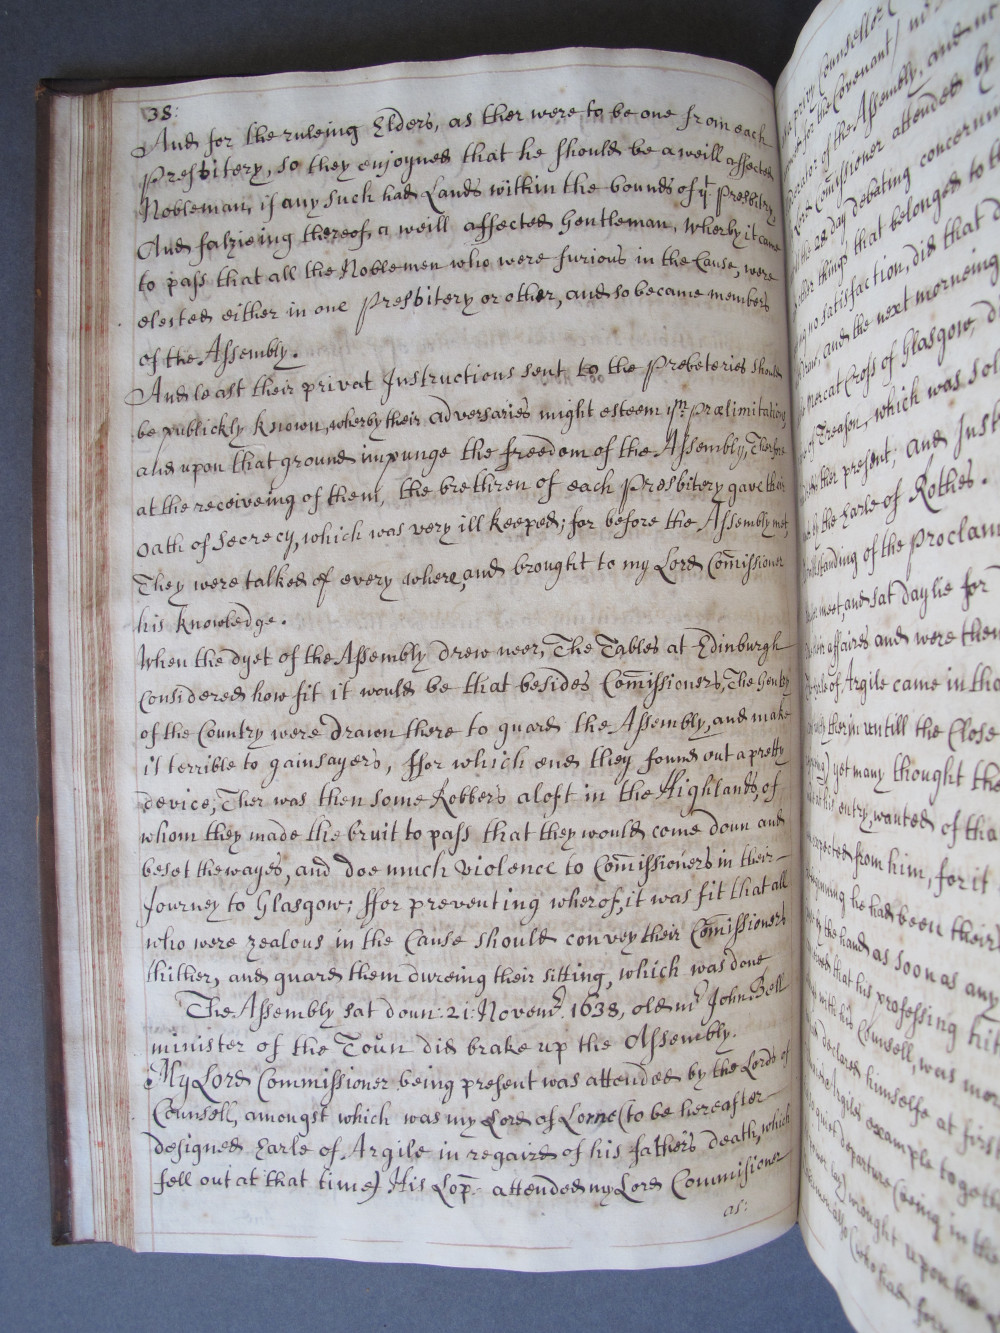 38:
And for the ruleing Elders, as ther were to be one from each
Presbitery, so they enjoyned that he should be a weill affected
Nobleman, if any such had Lands within the bounds of yt Presbitry,
And falzieing thereof, a weill affected Gentleman, Wherby it came
to pass that all the Noblemen who were furious in the Cause, were
elected either in one Presbitery or other, and so became members
of the Assembly.
And least their privat Instructions sent to the Presbeteries should
be publickly known, wherby their adversaries might esteem ym Prælimitations,
and upon that ground impunge the freedom of the Assembly, Therfore
at the receiveing of them, the brethren of each Presbitery gave their
oath of secrecy, which was very ill keeped; for before the Assembly met,
They were talked of every where, and brought to my Lord Comissioner
his knowledge.
When the dyet of the Assembly drew neer, The Tables at Edinburgh
Considered how fit it would be that besides Comissioners, The Gentry
of the Country were drawn there to guard the Assembly, and make
it terrible to gainsayers, ffor which end they found out a pretty
device; Ther was then some Robbers aloft in the Highlands, of
whom they made the bruit to pass that they would come doun and
beset the wayes, and doe much violence to Comissioners in their
Journey to Glasgow; ffor preventing wherof, it was fit that all
who were zealous in the Cause should convey their Comissioners
thither, and guard them dureing their sitting, which was done
The Assembly sat doun: 21: Novemr. 1638, old mr John Bell
minister of the Toun did brake up the Assembly.
My Lord Commissioner being present was attended by the Lords of
Counsell, amongst which was my Lord of Lorne (to be hereafter
designed Earle of Argile in regaird of his fathers death, which
fell out at that time) His Lop: attended my Lord Commisioner
as:
privy Counsellor
for the Covenant)
of the Assembly, and
Comissioner attended by
the 28 day debating concerning
other things that belonged to the
no satisfaction, did that
and the next morneing
Mercat Cross of Glasgow,
of Treason, which was
ther present, and Inst
by the Earle of Rothes.
standing of the Proclam
meet, and sat daylie for
affaires and were then
Earle of Argile came in tho
therin untill the Close
yet many thought the
entry, wanted of tha
expected from him, for it
he had been their
the hand as soon as any
that his professing hit
his Counsell, was mor
declared himselfe at first
Argiles example togeth
departure (being in the
wrought upon the